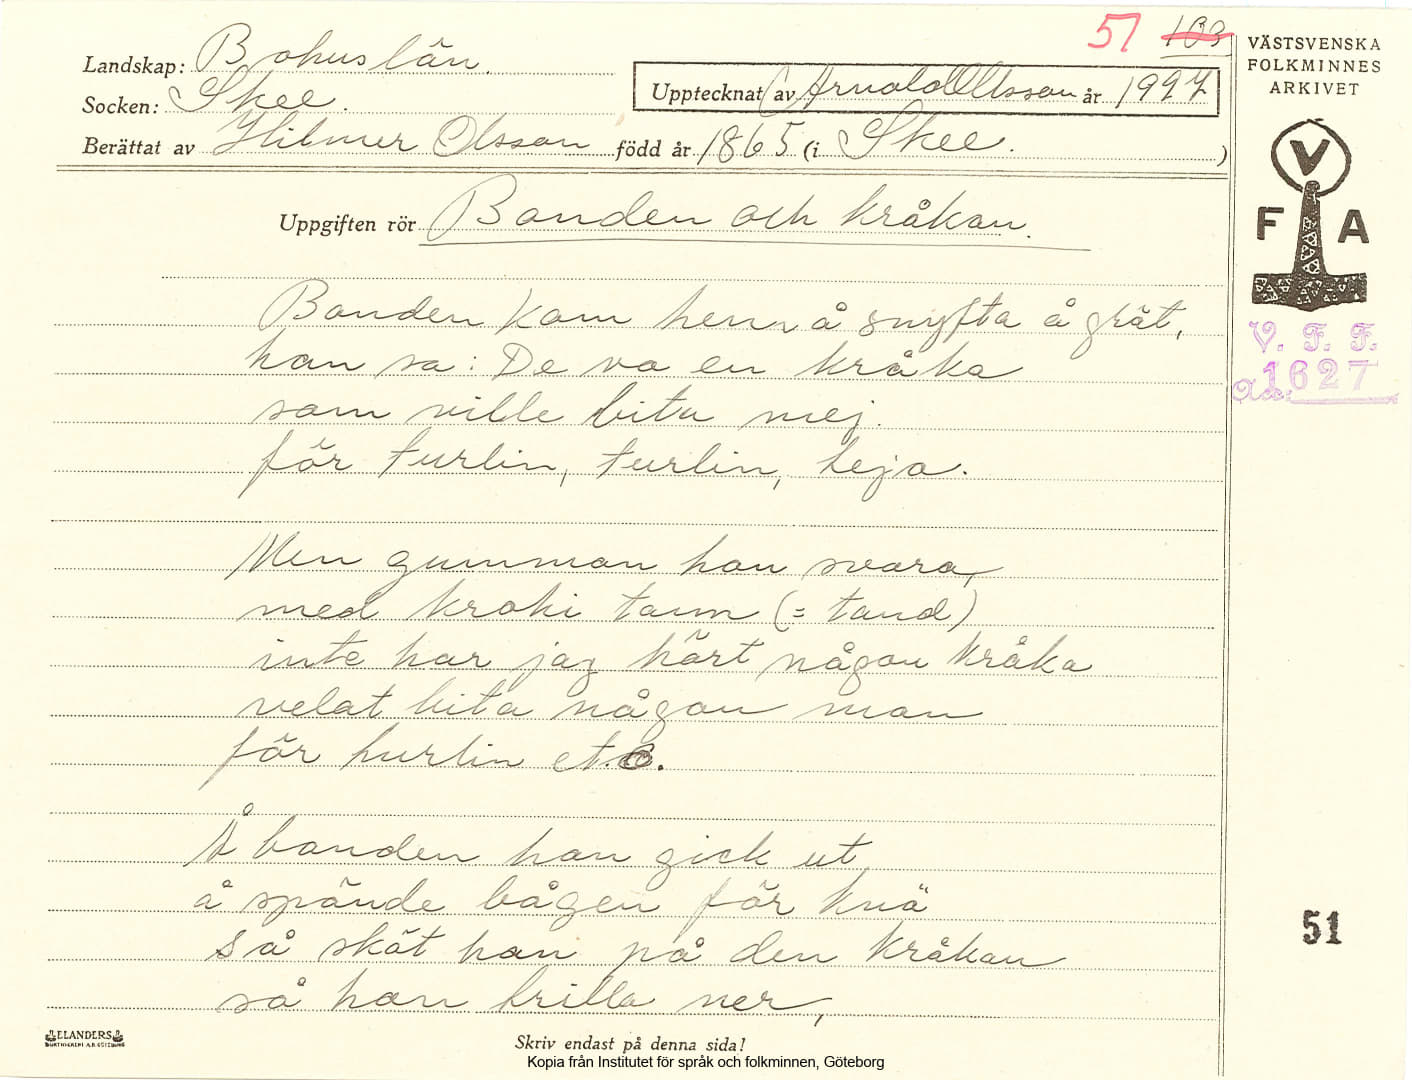 51 103
Landskap: Bohuslän.
Socken: Skee.
Upptecknat av Arnold Olsson år 1927
Berättat av Hilmer Olsson född år 1865 (i Skee. )
Uppgiften rör Bonden och kråkan.
Bonden kom hem å snyfta å grät,
han sa: De va en kråka
som ville bita mej.
för turlin, turlin, leja.
Men gumman hon svara,
med kroki tann (= tand)
inte har jag hört någon kråka
velat bita någon man
för hurlin etc.
Å bonden han gick ut
å spände bågen för knä
så sköt han på den kråkan
så han trilla ner,
ELANDERS
BOKTRYCKERI A.B. GÖTEBORG
Skriv endast på denna sida!
Kopia från Institutet för språk och folkminnen, Göteborg
VÄSTSVENSKA
FOLKMINNES
ARKIVET
V
F A
V. F. F.
Acc. 1627
51